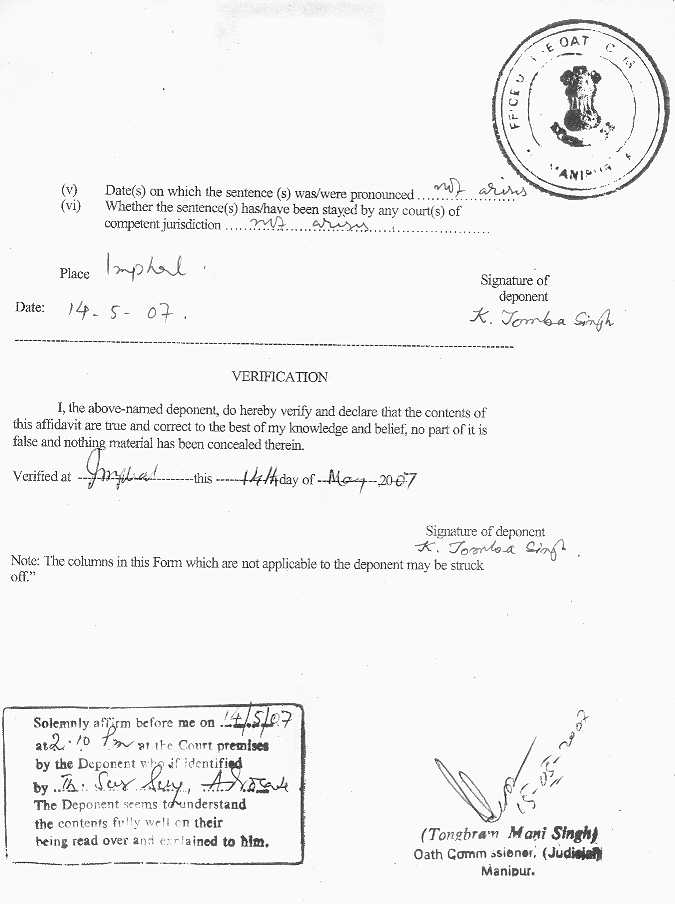 OATH
MANIPUR
(v) Date(s) on which the sentence (s) was/were pronounced ........ not arises
(vi) Whether the sentence(s) has/have been stayed by any court(s) of
competent jurisdiction ...... not arises ......................
Place Imphal .
Signature of
deponent
Date: 14-5-07.
K. Tomba Singh
VERIFICATION
I, the above-named deponent, do hereby verify and declare that the contents of
this affidavit are true and correct to the best of my knowledge and belief, no part of it is
false and nothing material has been concealed therein.
Verified at ---Imphal---------this ------14th day of --May---2007
Signature of deponent
K. Tomba Singh.
Note: The columns in this Form which are not applicable to the deponent may be struck
off.”
Solemnly affirm before me on ..14/5/07
at 2.10 Pm at the Court premises
by the Deponent who if identified
by ..Th. , Advocate
The Deponent seems to understand
the contents fully well on their
being read over and explained to him.
15-05-2007
(Tongbram Mani Singh)
Oath Commissioner, (Judicial)
Manipur.